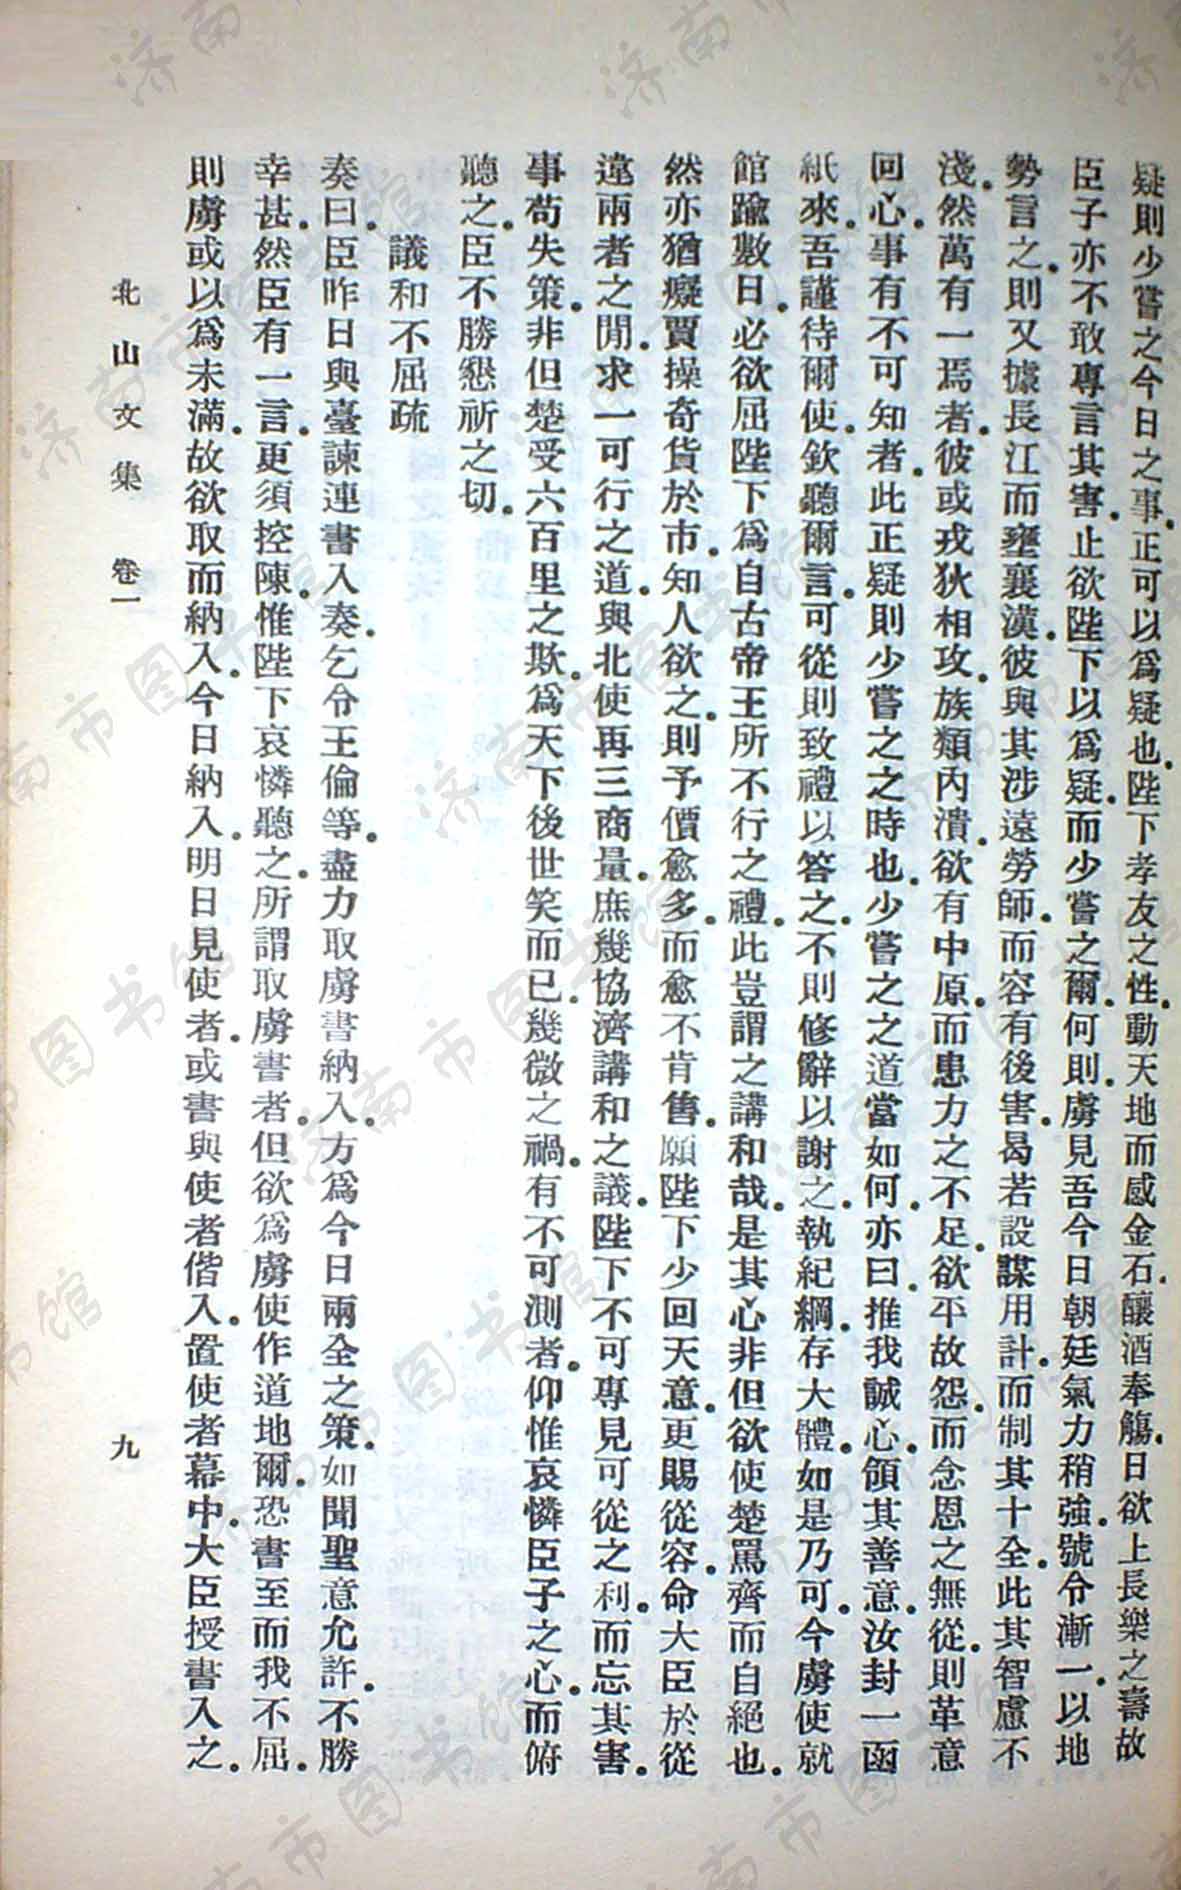 疑則少嘗之今日之事。正可以爲疑也。陛下孝友之性。動天地而感金石。釀酒奉觴。日欲上長樂之壽故
臣子亦不敢專言其害。止欲陛下以爲疑。而少嘗之爾。何則。虜見吾今日朝廷氣力稍強。號令漸一。以地
勢言之。則又據長江而壅襄漢。彼與其涉遠勞師。而容有後害。曷若設謀用計。而制其十全。此其智慮不
淺。然萬有一焉者。彼或戎狄相攻。族類內潰。欲有中原。而患力之不足。欲平故怨。而念恩之無從。則革意
回心。事有不可知者。此正疑則少嘗之之時也。少嘗之之道當如何。亦曰。推我誠心。領其善意。汝封一函
紙來。吾謹待爾使。欽聽爾言。可從則致禮以答之。不則修辭以謝之。執紀綱。存大體。如是乃可。今虜使就
館踰數日。必欲屈陛下爲自古帝王所不行之禮。此豈謂之講和哉。是其心非但欲使楚罵齊而自絕也。
然亦猶癡賈操奇貨於市。知人欲之。則予價愈多。而愈不肯售。願陛下少回天意。更賜從容。命大臣於從
違兩者之閒。求一可行之道。與北使再三商量。庶幾協濟講和之議。陛下不可專見可從之利。而忘其害。
事苟失策。非但楚受六百里之欺。爲天下後世笑而已。幾微之禍。有不可測者。仰惟哀憐臣子之心。而俯
聽之。臣不勝懇祈之切。
議和不屈疏
奏曰。臣昨日與臺諫連書入奏。乞令王倫等。盡力取虜書納入。方爲今日兩全之策。如聞聖意允許。不勝
幸甚。然臣有一言。更須控陳。惟陛下哀憐聽之。所謂取虜書者。但欲爲虜使作道地爾。恐書至而我不屈。
則虜或以爲未滿。故欲取而納入。今日納入。明日見使者。或書與使者偕入。置使者幕中。大臣授書入之。
北山文集 卷一 九